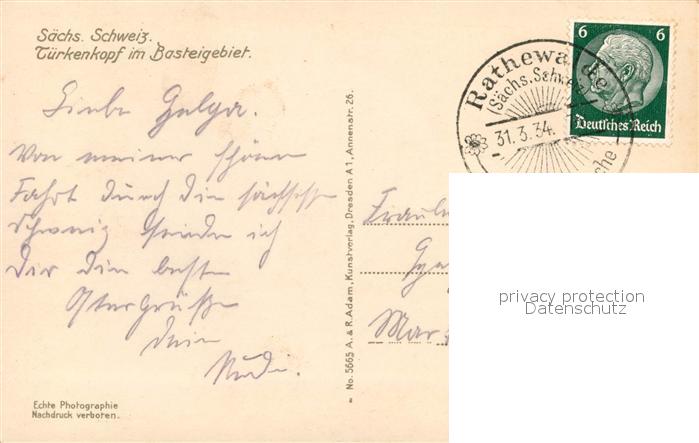 Sächs. Schweiz.
Türkenkopf im Basteigebiet.
Liebe Helga.
Von meiner schönen
Fahrt durch die sächsische
Schweiz sende ich
Dir die besten
Ostergrüße
Dein
Rudi.
Echte Photographie
Nachdruck verboten.
No. 5665 A. & R. Adam, Kunstverlag, Dresden A 1, Annenstr. 26.
Rathewalde
(Sächs. Schweiz)
31.3.34.
6 6
Deutsches Reich
Mar
privacy protection
Datenschutz